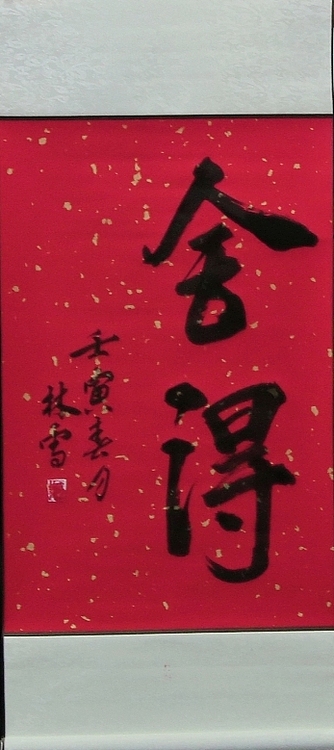 舍得
壬寅春月
林雪